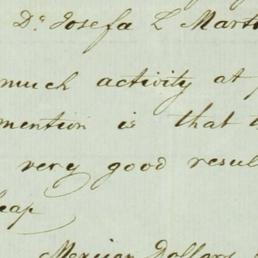 Dᵃ Josefa L Mart
much activity at
mention is that t
very good resul
eap
Mexican Dollars